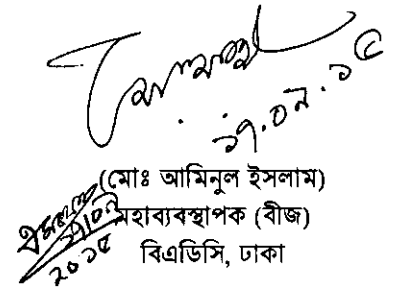 ১৭.০৯.১৫
(মোঃ আমিনুল ইসলাম)
মহাব্যবস্থাপক (বীজ)
বিএডিসি, ঢাকা